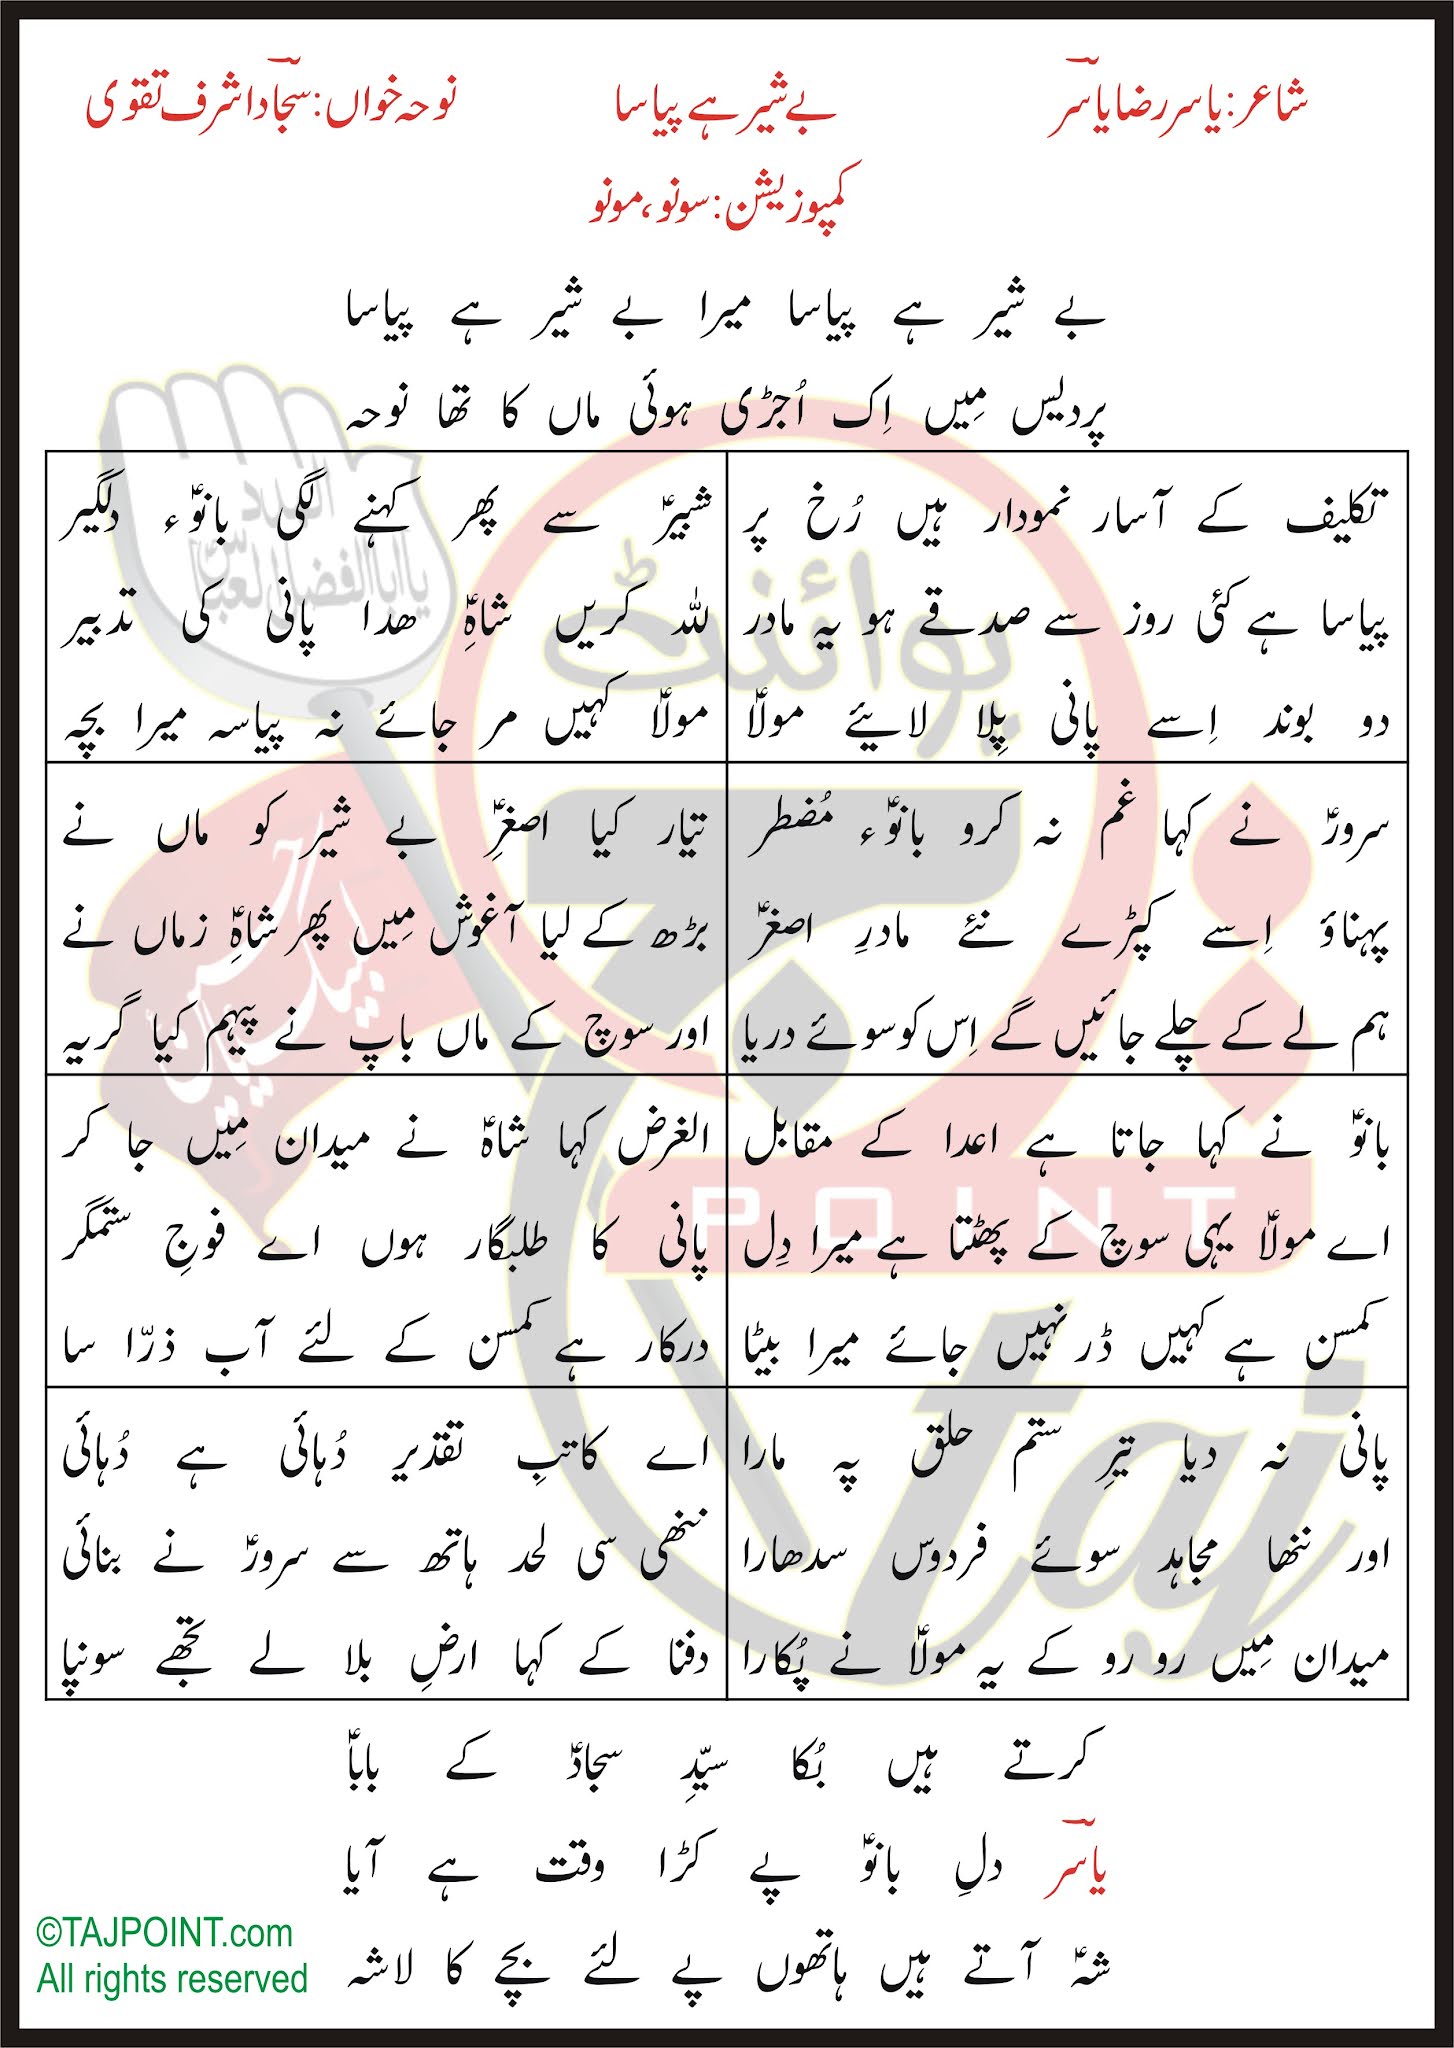 شاعر: یاسر رضا یاسؔر
بے شیر ہے پیاسا
نوحہ خواں: سجاؔد اشرف تقوی
کمپوزیشن: سونو، مونو
بے شیر ہے پیاسا میرا بے شیر ہے پیاسا
پردیس مِیں اِک اُجڑی ہوئی ماں کا تھا نوحہ
تکلیف کے آسار نمودار ہیں رُخ پر
پیاسا ہے کئی روز سے صدقے ہو یہ مادر
دو بوند اِسے پانی پِلا لائیے مولاؑ
شبیرؑ سے پھر کہنے لگی بانوؑء دلگیر
للہ کریں شاہِؑ ھدا پانی کی تدبیر
مولاؑ کہیں مر جائے نہ پیاسہ میرا بچہ
سرورؑ نے کہا غم نہ کرو بانوؑء مُضطر
پہناؤ اِسے کپڑے نئے مادرِ اصغرؑ
ہم لے کے چلے جائیں گے اِس کو سوئے دریا
تیار کیا اصغرِؑ بے شیر کو ماں نے
بڑھ کے لیا آغوش مِیں پھر شاہِؑ زماں نے
اور سوچ کے ماں باپ نے پیہم کیا گریہ
بانوؑ نے کہا جاتا ہے اعدا کے مقابل
اے مولاؑ یہی سوچ کے پھٹتا ہے میرا دِل
کمسن ہے کہیں ڈر نہیں جائے میرا بیٹا
الغرض کہا شاہؑ نے میدان مِیں جا کر
پانی کا طلبگار ہوں اے فوجِ ستمگر
درکار ہے کمسن کے لئے آب ذرّا سا
پانی نہ دیا تیرِ ستم حلق پہ مارا
اور ننھا مجاہد سوئے فردوس سدھارا
میدان مِیں رو رو کے یہ مولاؑ نے پُکارا
اے کاتبِ تقدیر دُہائی ہے دُہائی
ننھی سی لحد ہاتھ سے سرورؑ نے بنائی
دفنا کے کہا ارضِ بلا لے تجھے سونپا
کرتے ہیں بُکا سیّدِ سجادؑ کے باباؑ
یاسؔر دلِ بانوؑ پے کڑا وقت ہے آیا
شہؑ آتے ہیں ہاتھوں پے لئے بچے کا لاشہ
©TAJPOINT.com
All rights reserved
پوائنٹ
POINT
taj